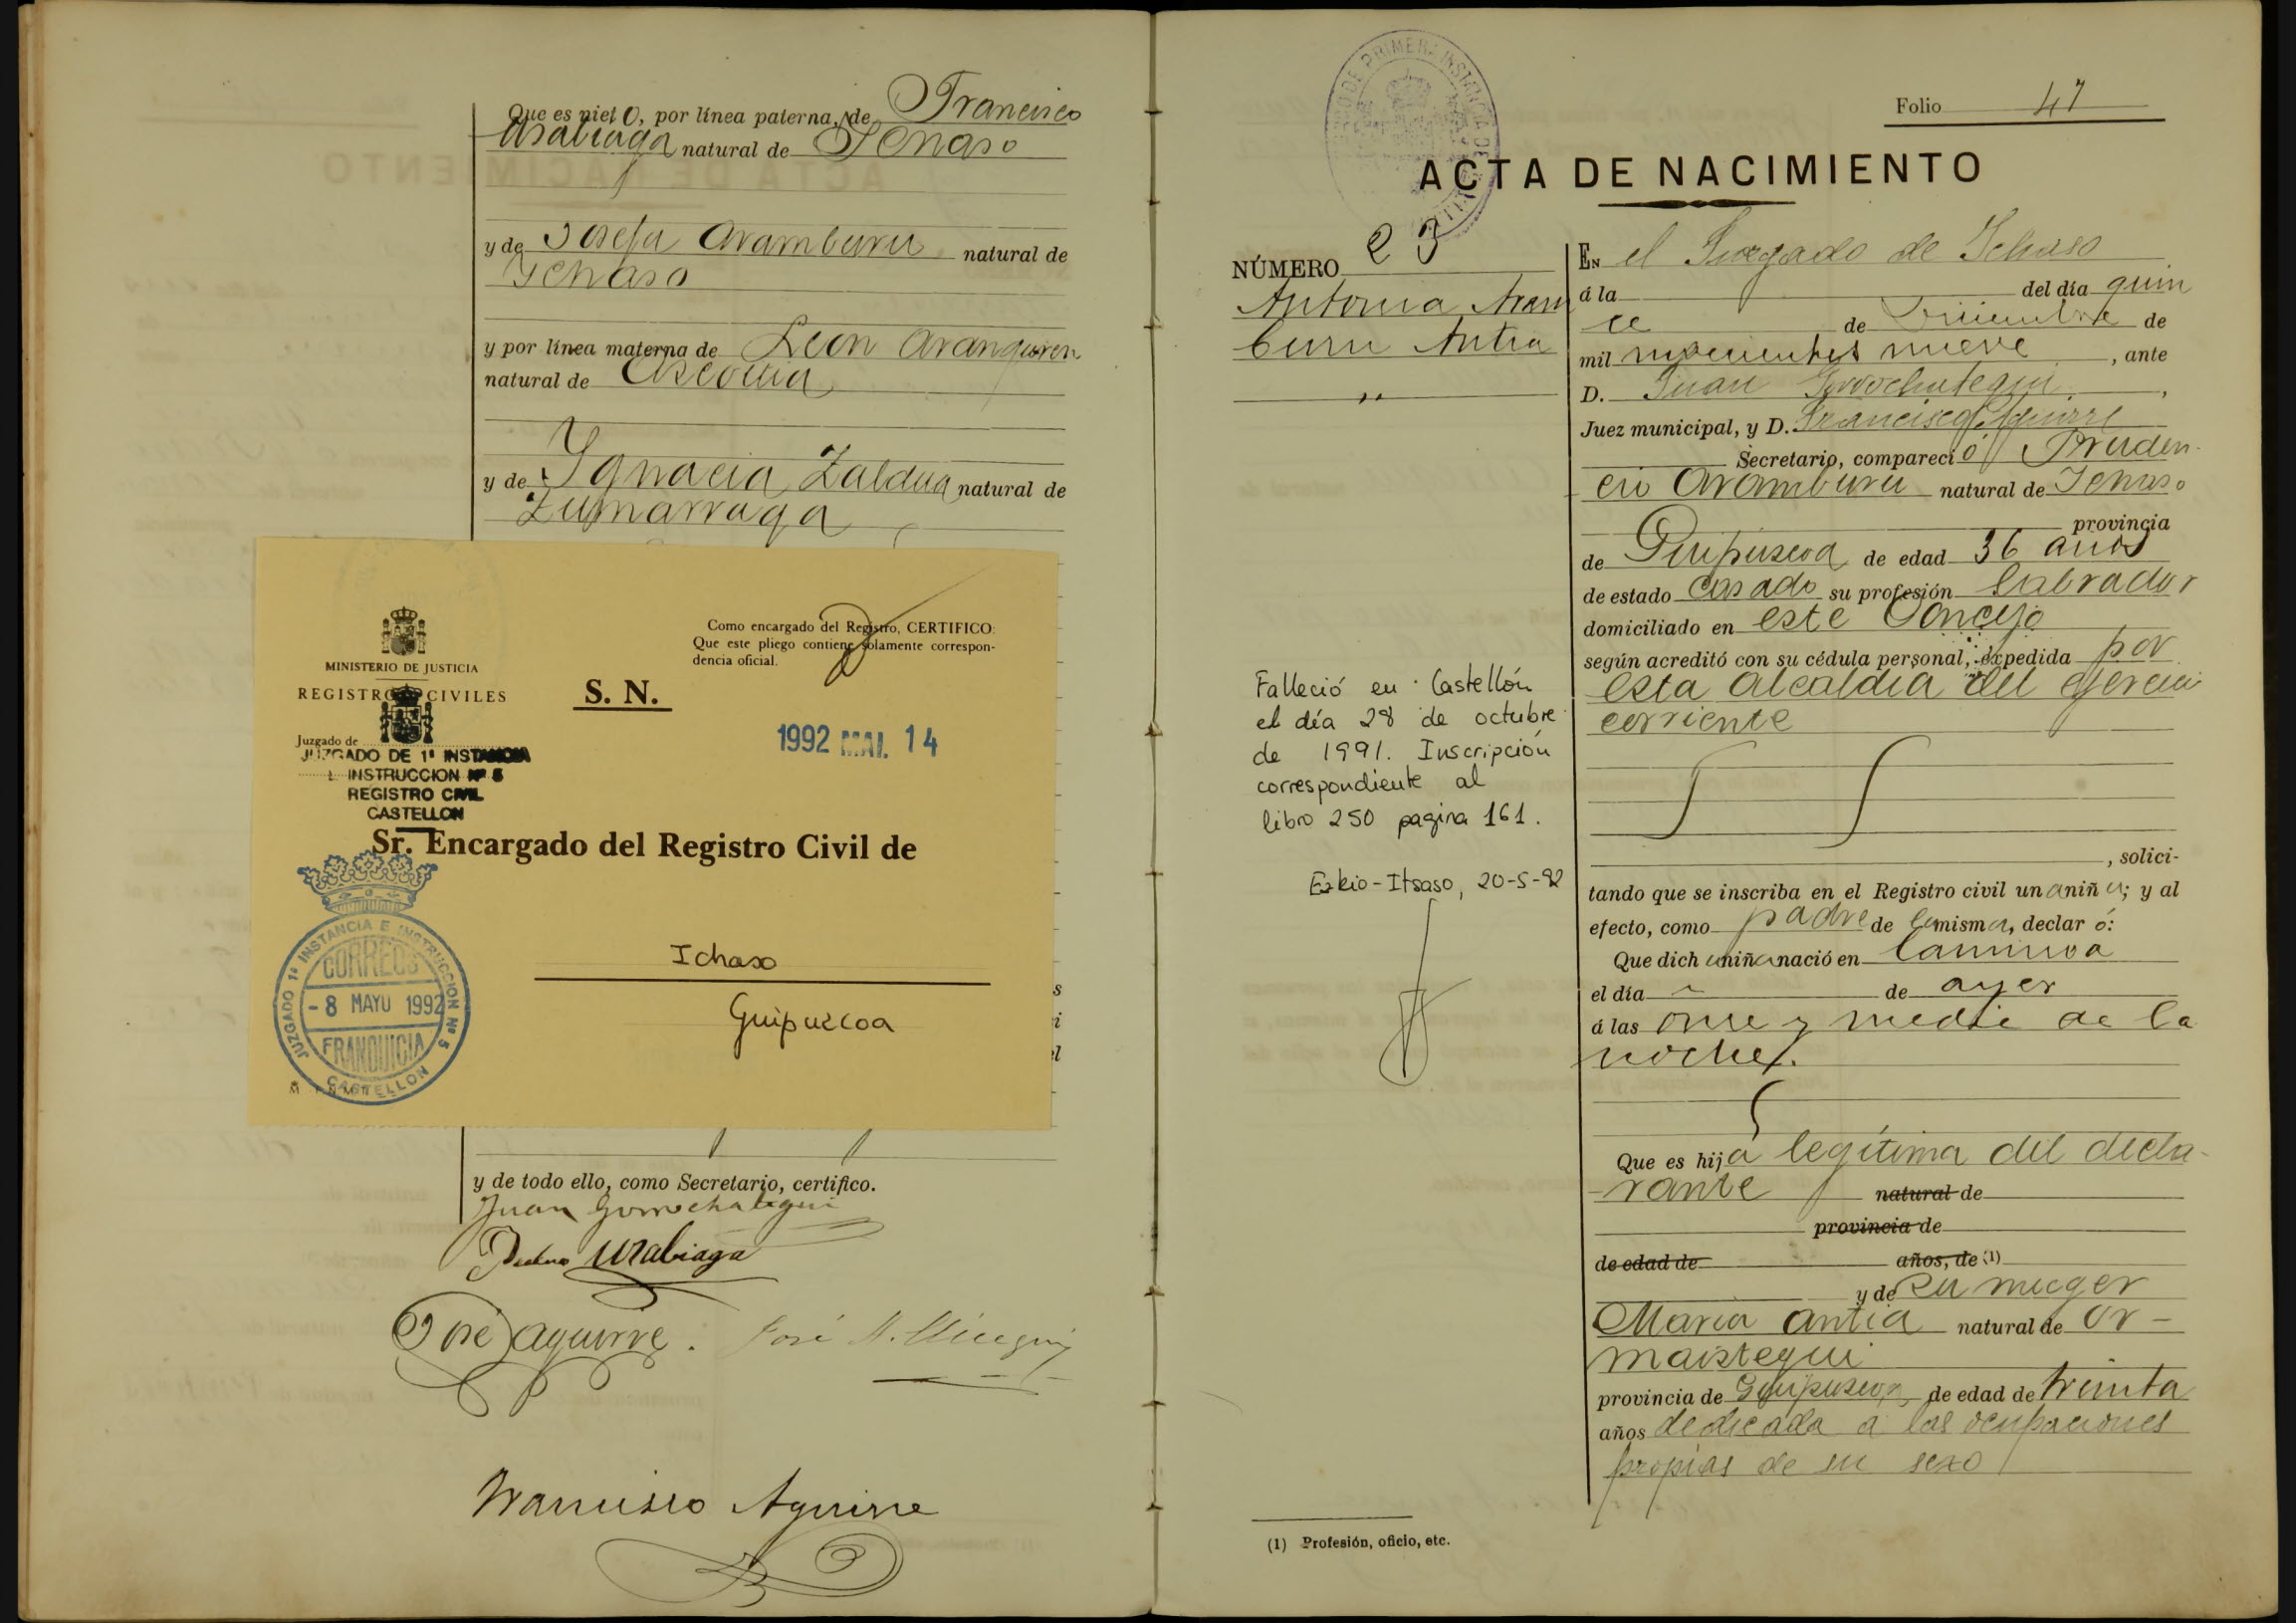 Que es nieto, por línea paterna, de Francisco
Urabiaga natural de Ichaso
y de Josefa Aramburu natural de
Ichaso
y por línea materna de Leon Aranguren
natural de Ascoitia
y de Ygnacia Zaldua natural de
Zumarraga
MINISTERIO DE JUSTICIA
REGISTROS CIVILES
Juzgado de
JUZGADO DE 1ª INSTANCIA
E INSTRUCCION Nº 5
REGISTRO CIVIL
CASTELLON
S. N.
Como encargado del Registro, CERTIFICO:
Que este pliego contiene solamente correspon-
dencia oficial.
1992 MAI. 14
Sr. Encargado del Registro Civil de
Ichaso
Guipuzcoa
JUZGADO 1ª INSTANCIA E INSTRUCCION Nº 5
CORREOS
- 8 MAYO 1992
FRANQUICIA
CASTELLON
s
i
el
y de todo ello, como Secretario, certifico.
Juan Gorrochategui
Pedro Urabiaga
José Aguirre. José
Francisco Aguirre
Folio 47
ACTA DE NACIMIENTO
NÚMERO 23
Antonia Aram
buru Antia
"
Falleció en Castellón
el día 28 de octubre
de 1991. Inscripción
correspondiente al
libro 250 pagina 161.
Ezkio-Itsaso, 20-5-92
EN el Juzgado de Ichaso
á la del día quin
ce de Diciembre de
mil novecientos nueve, ante
D. Juan Gorrochategui,
Juez municipal, y D. Francisco Aguirre
Secretario, compareció Pruden-
cio Aramburu natural de Ichaso
provincia
de Guipuscoa de edad 36 años
de estado casado su profesión labrador
domiciliado en este Concejo
según acreditó con su cédula personal, expedida por
esta alcaldia del ejercicio
corriente
, solici-
tando que se inscriba en el Registro civil una niña; y al
efecto, como padre de la misma, declaró:
Que dicha niña nació en
el día de ayer
á las once y media de la
noche.
Que es hija legítima del decla-
rante natural de
provincia de
de edad de años, de (1)
y de su muger
Maria Antia natural de Or-
maistegui
provincia de Guipuscoa, de edad de treinta
años dedicada a las ocupaciones
propias de su sexo
(1) Profesión, oficio, etc.